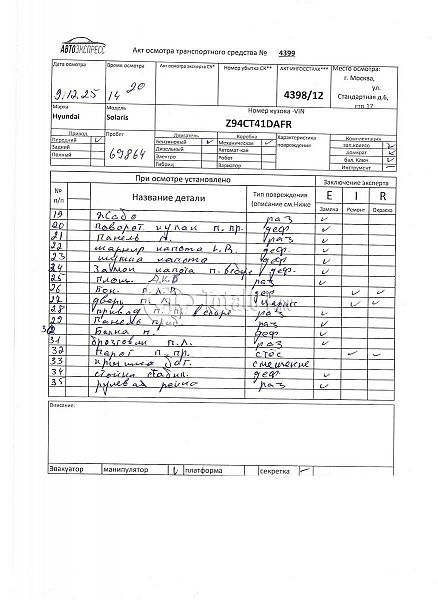 АВТОЭКСПРЕСС
Акт осмотра транспортного средства № 4399
Дата осмотра Время осмотра Акт осмотра эксперта СК* Номер убытка СК** АКТ ИНГОССТРАХ*** Место осмотра:
г. Москва,
ул.
Стандартная д.6,
стр.17
9.12.25 14 20 4398/12
Марка Модель Номер кузова -VIN
Hyundai Solaris Z94CT41DAFR
Привод Пробег Двигатель Коробка Характеристика повреждения Комментарии
Передний Бензиновый Механическая зап.колесо
Задний Дизельный Автомат-кая домкрат
Полный 69864 Электро Робот бал. Ключ
Гибрид Вариатор Инструмент
При осмотре установлено Заключение эксперта
№ п/п Название детали Тип повреждения (описание см.Ниже E I R
Замена Ремонт Окраска
19 Жабо раз
20 Поворот кулак п. пр. деф
21 Панель раз
22 шарнир капота L.R. деф.
23 капота деф
24 Замок капота п. вборе деф.
25 площ. АКБ раз
26 Бок. п.л.в. деф
27 дверь п. л.
28 привод п. п. в сборе раз
29 Панель раз
30 Балка п. деф
31 брызговик п.л. раз
32 Порог п. пр.
33 крышка баг. смещение
34 стойка стабил. деф
35 рулевая рейка раз
Описание:
Эвакуатор манипулятор платформа секретка